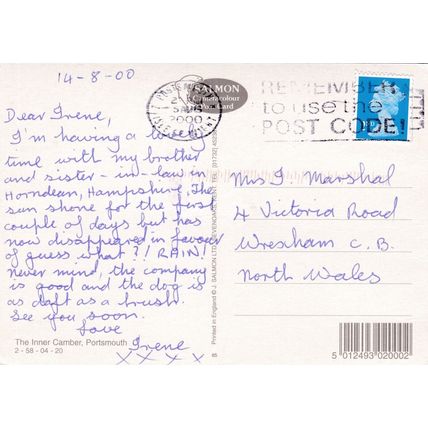 14-8-00
Dear Irene,
I'm having a lovely
time with my brother
and sister-in-law in
Horndean, Hampshire. The
sun shone for the first
couple of days but has
now disappeared in favour
of guess what?! RAIN!
Never mind, the company
is good and the dog is
as daft as a brush.
See you soon.
Love
Irene
x x x x
The Inner Camber, Portsmouth
2-58-04-20
SALMON
Cameracolour
Post Card
Printed in England © J. SALMON LTD., SEVENOAKS, KENT. TEL: (01732) 452
B
2000
REMEMBER
to use the
POST CODE!
Mrs I. Marshal
4 Victoria Road
Wrexham C.B.
North Wales
5 012493 020002